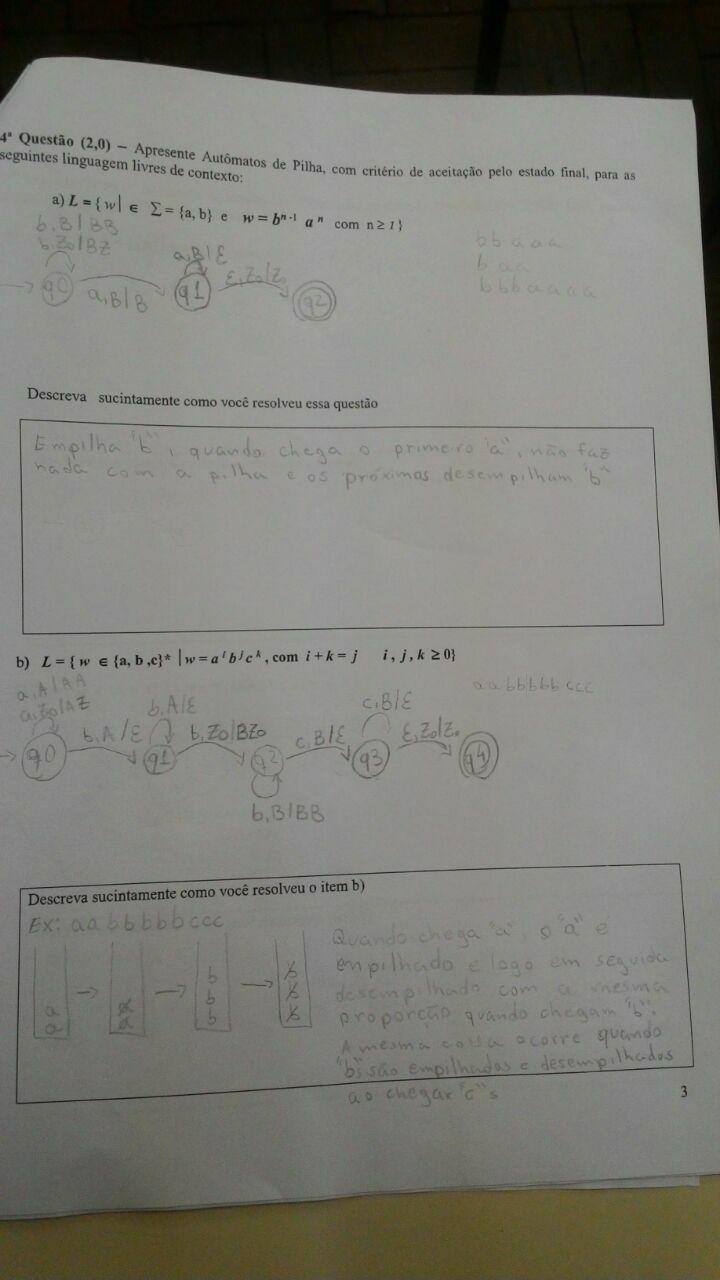 4ª Questão (2,0) – Apresente Autômatos de Pilha, com critério de aceitação pelo estado final, para as
seguintes linguagem livres de contexto:
a) L = { w| ∈ Σ = {a, b} e w = bⁿ⁻¹ aⁿ com n ≥ 1}
b,B|BB
b,Z0|BZ
a,B|ε
ε,Z0|Z0
q0
a,B|B
q1
q2
bbaaa
baa
bbbaaaa
Descreva sucintamente como você resolveu essa questão
Empilha "b", quando chega o primeiro "a", não faz
nada com a pilha e os próximas desempilham "b"
b) L = { w ∈ {a, b ,c}* | w = aⁱ bʲ cᵏ, com i + k = j i , j, k ≥ 0}
aabbbbbccc
a,A|AA
a,Z0|AZ
b,A/ε
b,A/ε
b,Z0|BZ0
c,B/ε
c,B/ε
ε,Z0/Z0
q0
q1
q2
q3
q4
b,B|BB
Descreva sucintamente como você resolveu o item b)
Ex: aabbbbbccc
a
a
a
a
b
b
b
b
b
b
Quando chega "a", o "a" é
empilhado e logo em seguida
desempilhado com a mesma
proporção quando chegam "b".
A mesma coisa ocorre quando
"b"s são empilhados e desempilhados
ao chegar "c"s
3